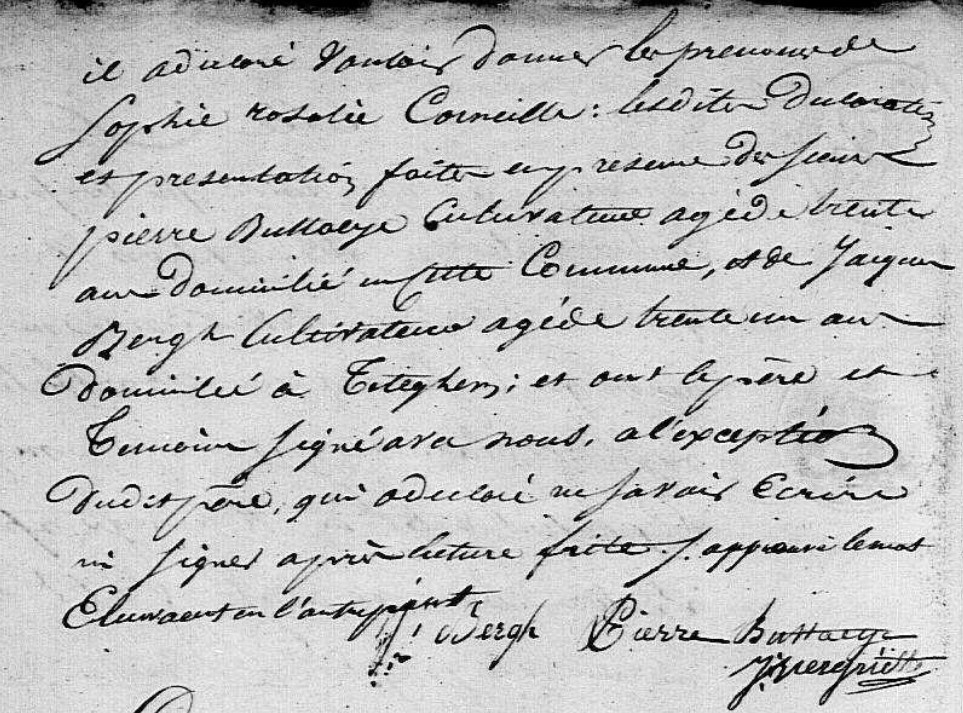 il a declaré Vouloir donner les prenoms de
Sophie rosalie Corneille : lesdites Declaration
et presentation faites en presence des sieurs
pierre Buttaeye Cultivateur agé de trente
ans domicilié en cette Commune, et de Jacques
Bergh Cultivateur agé de trente un ans
domicilié à Teteghem ; et ont le père et
Temoins signé avec nous, a l'exception
dudit père, qui a declaré ne savoir Ecrire
ni signer après lecture faite. J. approuvé le mot
en l'autre part
J. Bergh Pierre Buttaeye